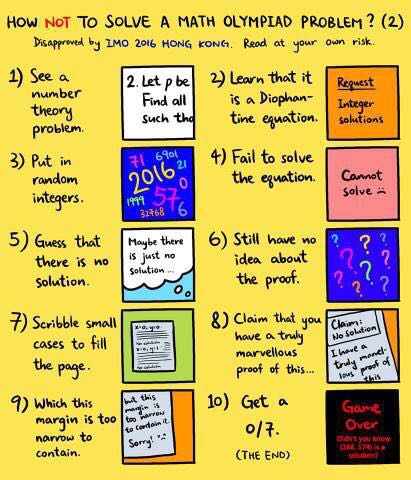 HOW NOT TO SOLVE A MATH OLYMPIAD PROBLEM? (2)
Disapproved by IMO 2016 HONG KONG. Read at your own risk.
1) See a
number
theory
problem.
2. Let p be
Find all
such tha
2) Learn that it
is a Diophan-
tine equation.
Request
Integer
solutions
3) Put in
random
integers.
71
6901
21
2016
0
1999
57
32768
6
4) Fail to solve
the equation.
Cannot
solve :(
5) Guess that
there is no
solution.
Maybe there
is just no
solution ...
6) Still have no
idea about
the proof.
? ? ? ? ? ? ? ? ?
7) Scribble small
cases to fill
the page.
x=0, y=0:
No solution
x=0, y=1:
No solution
8) Claim that you
have a truly
marvellous
proof of this...
Claim:
No solution
I have a
truly marvel-
lous proof of
this
9) Which this
margin is too
narrow to
contain.
but this
margin is
too narrow
to contain it.
Sorry!
10) Get a
0/7.
(THE END)
Game
Over
Didn't you know
(168, 174) is a
solution?